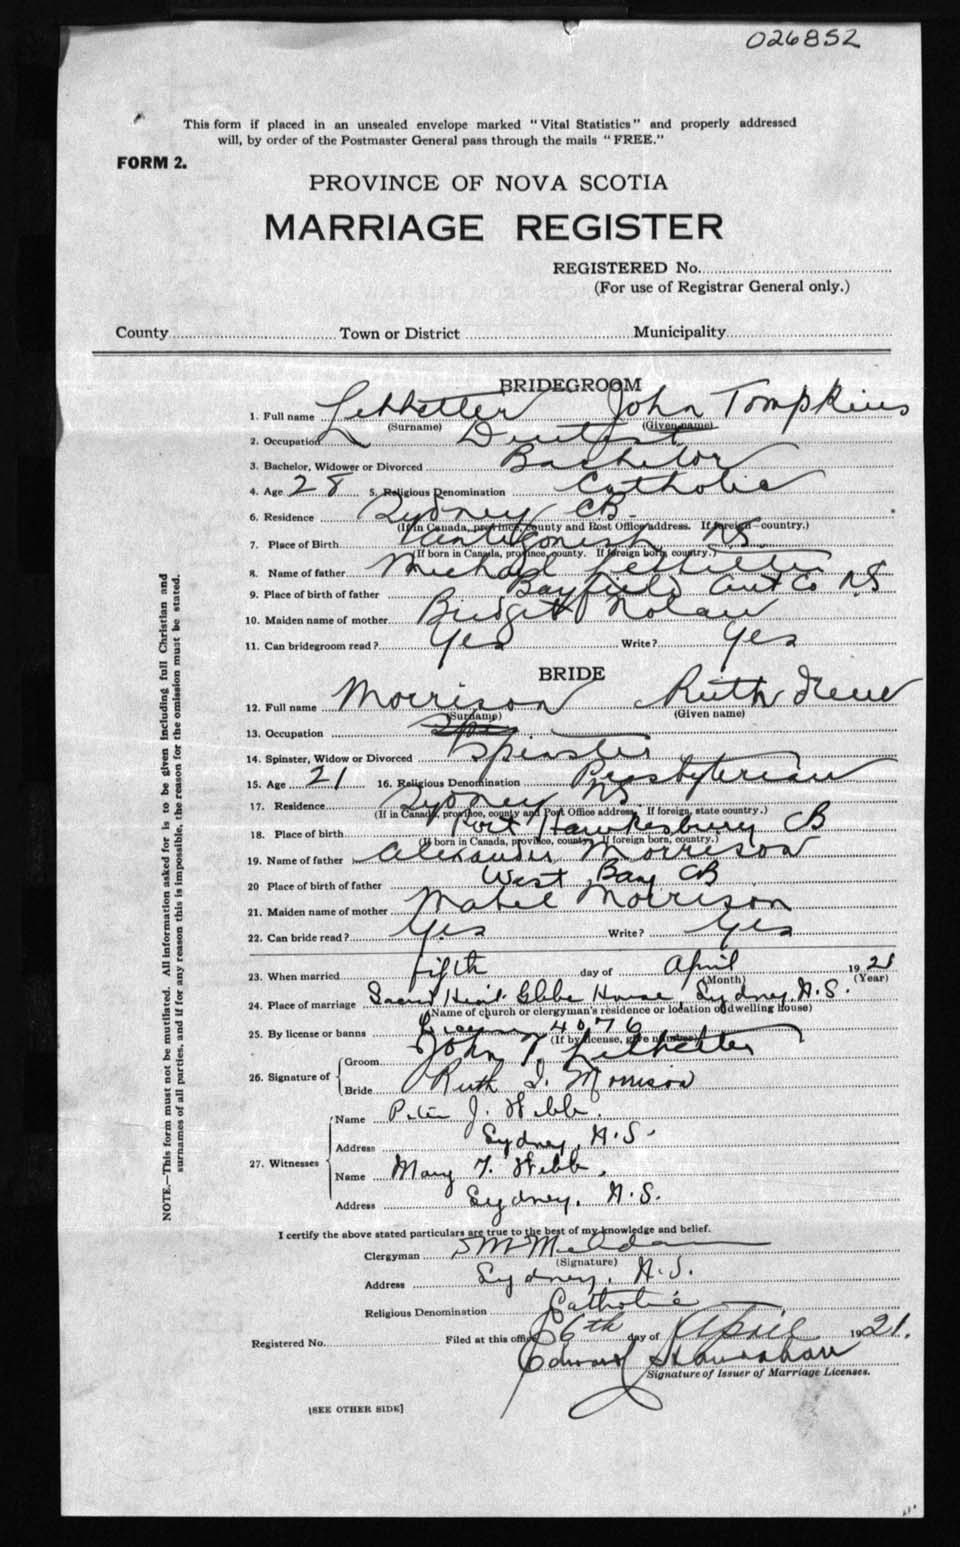 026852
This form if placed in an unsealed envelope marked "Vital Statistics" and properly addressed
will, by order of the Postmaster General pass through the mails "FREE."
FORM 2.
PROVINCE OF NOVA SCOTIA
MARRIAGE REGISTER
REGISTERED No.
(For use of Registrar General only.)
County Town or District Municipality
BRIDEGROOM
1. Full name John Tompkins
(Surname) (Given name)
2. Occupation Dentist
3. Bachelor, Widower or Divorced Bachelor
4. Age 28 5. Religious Denomination Catholic
6. Residence Sydney CB.
(If in Canada, province, county and Post Office address. If foreign country.)
7. Place of Birth Antigonish NS.
(If born in Canada, province, county. If foreign born, country.)
8. Name of father Michael
9. Place of birth of father Bayfield Ant Co NS
10. Maiden name of mother Bridget Nolan
11. Can bridegroom read? Yes Write? Yes
BRIDE
12. Full name Morrison Ruth Irene
(Surname) (Given name)
13. Occupation
14. Spinster, Widow or Divorced Spinster
15. Age 21 16. Religious Denomination Presbyterian
17. Residence Sydney NS
(If in Canada, province, county and Post Office address. If foreign, state country.)
18. Place of birth Port Hawkesbury CB
(If born in Canada, province, county. If foreign born, country.)
19. Name of father Alexander Morrison
20 Place of birth of father West Bay CB
21. Maiden name of mother Mabel Morrison
22. Can bride read? Yes Write? Yes
23. When married fifth day of April 1921
(Month) (Year)
24. Place of marriage Sacred Heart Glebe House, Sydney, N.S.
(Name of church or clergyman's residence or location of dwelling house)
25. By license or banns License 4076
(If by license, give number)
26. Signature of Groom John T.
Bride Ruth I. Morrison
27. Witnesses Name Peter J. Webb.
Address Sydney, N.S.
Name Mary T. Webb.
Address Sydney, N.S.
I certify the above stated particulars are true to the best of my knowledge and belief.
Clergyman
(Signature)
Address Sydney, N.S.
Religious Denomination Catholic
Registered No. Filed at this office 6th day of April 1921.
Edward
Signature of Issuer of Marriage Licenses.
[SEE OTHER SIDE]
NOTE.—This form must not be mutilated. All information asked for is to be given including full Christian and
surnames of all parties, and if for any reason this is impossible, the reason for the omission must be stated.